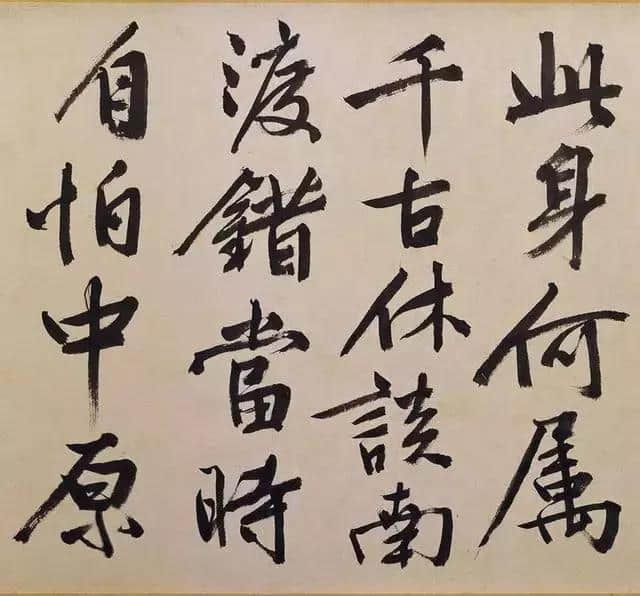 此身何属
千古休談南
渡錯當時
自怕中原